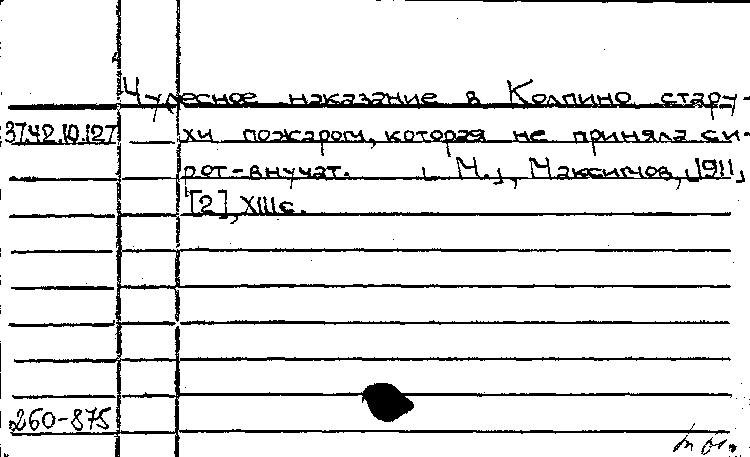 Чудесное наказание в Колпино стару-
37.42.10.127 хи пожаром, которая не приняла си-
рот-внучат. [М.], Максимов, [1911]
[2], XIII с.
260-875